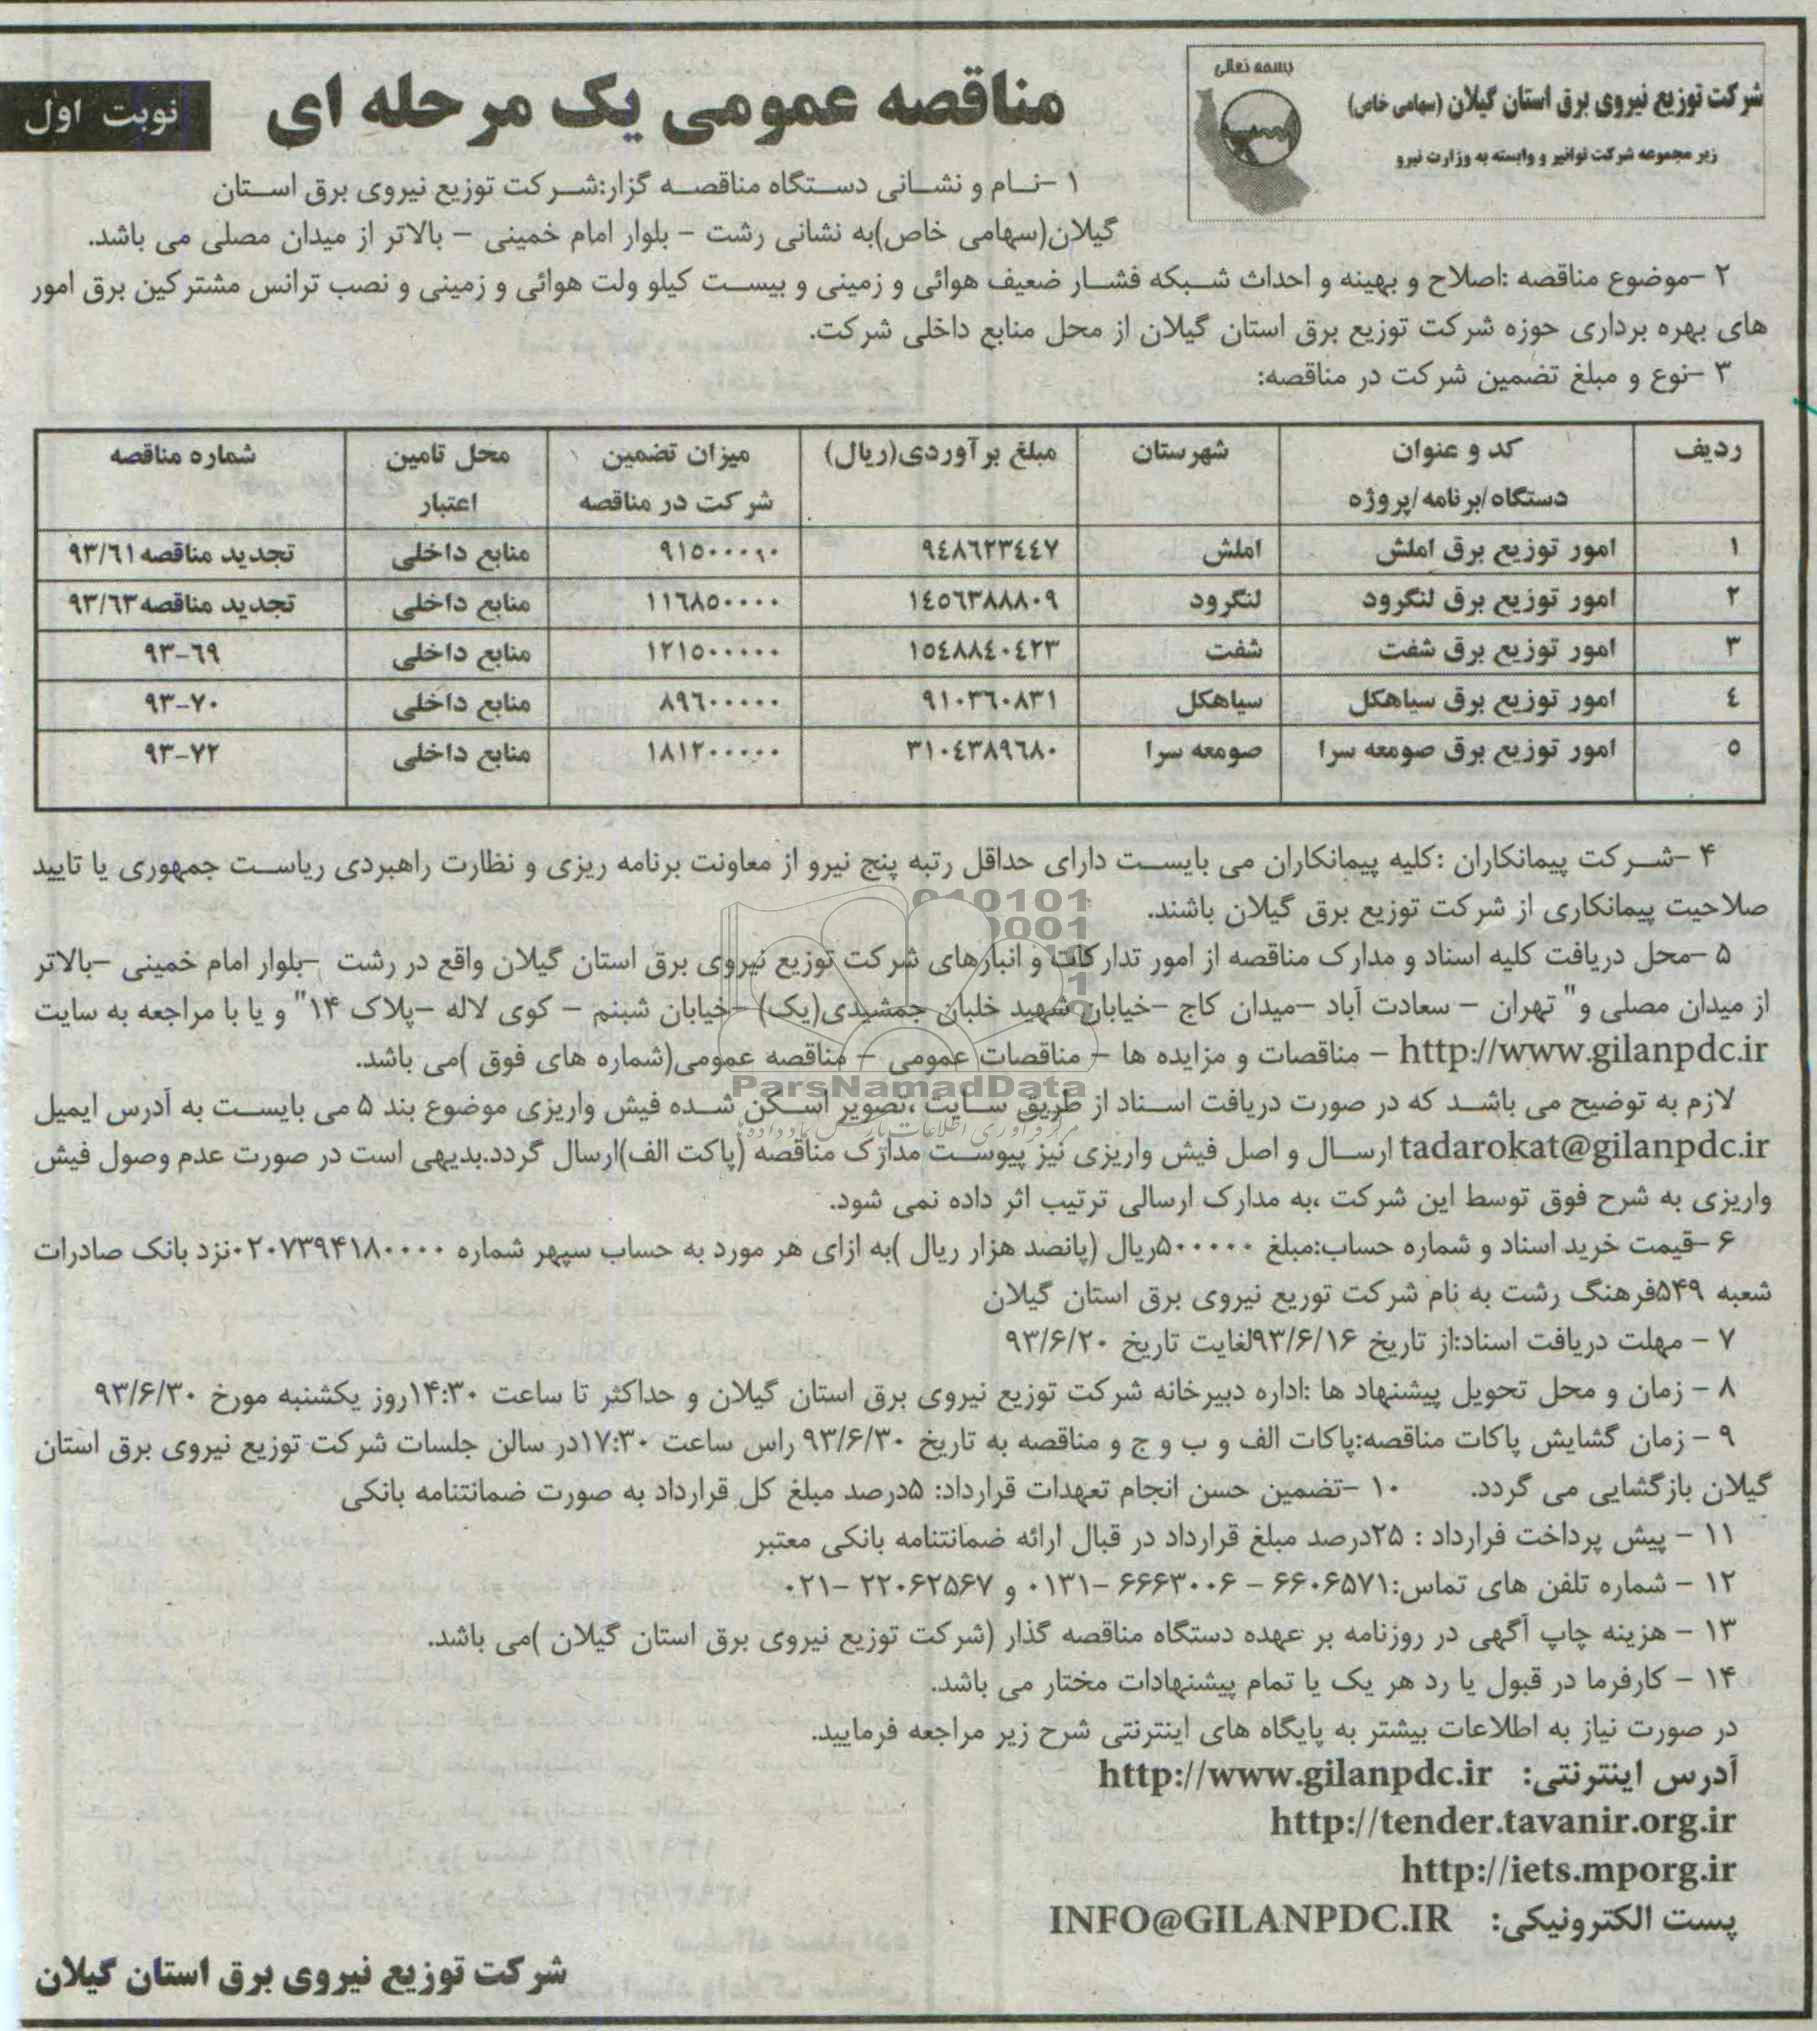 بسمه تعالی
شرکت توزیع نیروی برق استان گیلان (سهامی خاص)
زیر مجموعه شرکت توانیر و وابسته به وزارت نیرو
مناقصه عمومی یک مرحله ای
نوبت اول
۱ -نام و نشانی دستگاه مناقصه گزار:شرکت توزیع نیروی برق استان
گیلان(سهامی خاص)به نشانی رشت - بلوار امام خمینی - بالاتر از میدان مصلی می باشد.
۲ -موضوع مناقصه :اصلاح و بهینه و احداث شبکه فشار ضعیف هوائی و زمینی و بیست کیلو ولت هوائی و زمینی و نصب ترانس مشترکین برق امور
های بهره برداری حوزه شرکت توزیع برق استان گیلان از محل منابع داخلی شرکت.
۳ -نوع و مبلغ تضمین شرکت در مناقصه:
ردیف | کد و عنوان دستگاه/برنامه/پروژه | شهرستان | مبلغ برآوردی(ریال) | میزان تضمین شرکت در مناقصه | محل تامین اعتبار | شماره مناقصه
۱ | امور توزیع برق املش | املش | ۹٤۸٦۲۳٤٤۷ | ۹۱۵۰۰۰۰۰ | منابع داخلی | تجدید مناقصه۹۳/٦۱
۲ | امور توزیع برق لنگرود | لنگرود | ۱٤٥٦۳۸۸۸۰۹ | ۱۱٦۸٥۰۰۰۰ | منابع داخلی | تجدید مناقصه۹۳/٦۳
۳ | امور توزیع برق شفت | شفت | ۱٥٤۸۸٤۰٤۲۳ | ۱۲۱٥۰۰۰۰۰ | منابع داخلی | ۹۳-٦۹
٤ | امور توزیع برق سیاهکل | سیاهکل | ۹۱۰۳٦۰۸۳۱ | ۸۹٦۰۰۰۰۰ | منابع داخلی | ۹۳-۷۰
٥ | امور توزیع برق صومعه سرا | صومعه سرا | ۳۱۰٤۳۸۹٦۸۰ | ۱۸۱۲۰۰۰۰۰ | منابع داخلی | ۹۳-۷۲
۴ -شرکت پیمانکاران :کلیه پیمانکاران می بایست دارای حداقل رتبه پنج نیرو از معاونت برنامه ریزی و نظارت راهبردی ریاست جمهوری یا تایید
صلاحیت پیمانکاری از شرکت توزیع برق گیلان باشند.
۵ -محل دریافت کلیه اسناد و مدارک مناقصه از امور تدارکات و انبارهای شرکت توزیع نیروی برق استان گیلان واقع در رشت -بلوار امام خمینی -بالاتر
از میدان مصلی و" تهران - سعادت آباد -میدان کاج -خیابان شهید خلبان جمشیدی(یک) -خیابان شبنم - کوی لاله -پلاک ۱۴" و یا با مراجعه به سایت
http://www.gilanpdc.ir - مناقصات و مزایده ها - مناقصات عمومی - مناقصه عمومی(شماره های فوق )می باشد.
لازم به توضیح می باشد که در صورت دریافت اسناد از طریق سایت ،تصویر اسکن شده فیش واریزی موضوع بند ۵ می بایست به آدرس ایمیل
tadarokat@gilanpdc.ir ارسال و اصل فیش واریزی نیز پیوست مدارک مناقصه (پاکت الف)ارسال گردد.بدیهی است در صورت عدم وصول فیش
واریزی به شرح فوق توسط این شرکت ،به مدارک ارسالی ترتیب اثر داده نمی شود.
۶ -قیمت خرید اسناد و شماره حساب:مبلغ ۵۰۰۰۰۰ریال (پانصد هزار ریال )به ازای هر مورد به حساب سپهر شماره ۰۲۰۷۳۹۴۱۸۰۰۰۰نزد بانک صادرات
شعبه ۵۴۹فرهنگ رشت به نام شرکت توریع نیروی برق استان گیلان
۷ - مهلت دریافت اسناد:از تاریخ ۹۳/۶/۱۶لغایت تاریخ ۹۳/۶/۲۰
۸ - زمان و محل تحویل پیشنهاد ها :اداره دبیرخانه شرکت توزیع نیروی برق استان گیلان و حداکثر تا ساعت ۱۴:۳۰روز یکشنبه مورخ ۹۳/۶/۳۰
۹ - زمان گشایش پاکات مناقصه:پاکات الف و ب و ج و مناقصه به تاریخ ۹۳/۶/۳۰ راس ساعت ۱۷:۳۰در سالن جلسات شرکت توزیع نیروی برق استان
گیلان بازگشایی می گردد. ۱۰ -تضمین حسن انجام تعهدات قرارداد: ۵درصد مبلغ کل قرارداد به صورت ضمانتنامه بانکی
۱۱ - پیش پرداخت قرارداد : ۲۵درصد مبلغ قرارداد در قبال ارائه ضمانتنامه بانکی معتبر
۱۲ - شماره تلفن های تماس:۶۶۰۶۵۷۱ - ۶۶۶۳۰۰۶ -۰۱۳۱ و ۲۲۰۶۲۵۶۷ -۰۲۱
۱۳ - هزینه چاپ آگهی در روزنامه بر عهده دستگاه مناقصه گذار (شرکت توزیع نیروی برق استان گیلان )می باشد.
۱۴ - کارفرما در قبول یا رد هر یک یا تمام پیشنهادات مختار می باشد.
در صورت نیاز به اطلاعات بیشتر به پایگاه های اینترنتی شرح زیر مراجعه فرمایید.
آدرس اینترنتی: http://www.gilanpdc.ir
http://tender.tavanir.org.ir
http://iets.mporg.ir
پست الکترونیکی: INFO@GILANPDC.IR
شرکت توزیع نیروی برق استان گیلان
ParsNamadData